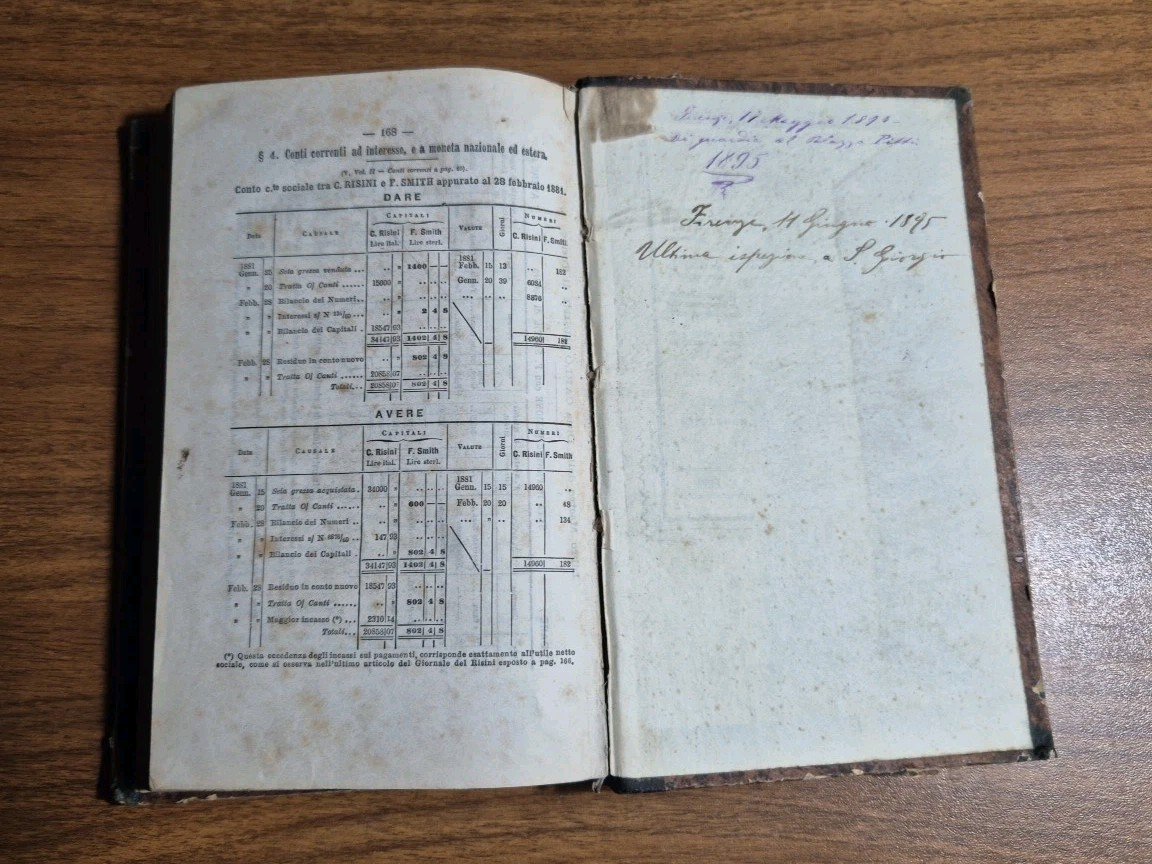 — 168 —
§ 4. Conti correnti ad interesse, e a moneta nazionale ed estera.
(V. Vol. II — Conti correnti a pag.
Conto c.te sociale tra C. RISINI e F. SMITH appurato al 28 febbraio 1881.
DARE
Data CAUSALE CAPITALI C. Risini Lire ital. F. Smith Lire sterl. VALUTE Giorni NUMERI C. Risini F. Smith
1881 1881
Genn. Seta grezza venduta ... .. » 1400 — — Febb. 15 13 .. 182
» 20 Tratta O/ Canti ...... 15600 » .. .. .. Genn. 20 39 6084 ..
Febb. 28 Bilancio dei Numeri.. .. » .. .. .. ... .. .. 8876 ..
» » Interessi s/ N ... .. » 2 4 8
» » Bilancio dei Capitali . 18547 93 .. .. ..
34147 93 1402 4 8 — 14960 182
Febb. 28 Residuo in conto nuovo .. » 802 4 8
» » Tratta O/ Canti ...... 20858 07 .. .. ..
Totali... 20858 07 802 4 8
AVERE
Data CAUSALE CAPITALI C. Risini Lire ital. F. Smith Lire sterl. VALUTE Giorni NUMERI C. Risini F. Smith
1881 1881
Genn. 15 Seta grezza acquistata. 34000 » .. .. .. Genn. 15 15 14960 ..
» 20 Tratta O/ Canti ...... .. » 600 — — Febb. 20 20 .. 48
Febb. 28 Bilancio dei Numeri .. .. » .. .. .. ... » .. .. 134
» » Interessi s/ N ... 147 93 .. .. ..
» » Bilancio dei Capitali . .. » 802 4 8
34147 93 1402 4 8 — 14960 182
Febb. 28 Residuo in conto nuovo 18547 93 .. .. ..
» » Tratta O/ Canti ...... .. » 802 4 8
» » Maggior incasso (*) ... 2310 14 .. .. ..
Totali... 20858 07 802 4 8
(*) Questa eccedenza degli incassi sui pagamenti, corrisponde esattamente all'utile netto
sociale, come si osserva nell'ultimo articolo del Giornale del Risini esposto a pag. 166.
Firenze, 17 Maggio
Di guardia al Palazzo Pitti
1895
Firenze, 11 Giugno 1895
Ultima ispezione a S Giorgio